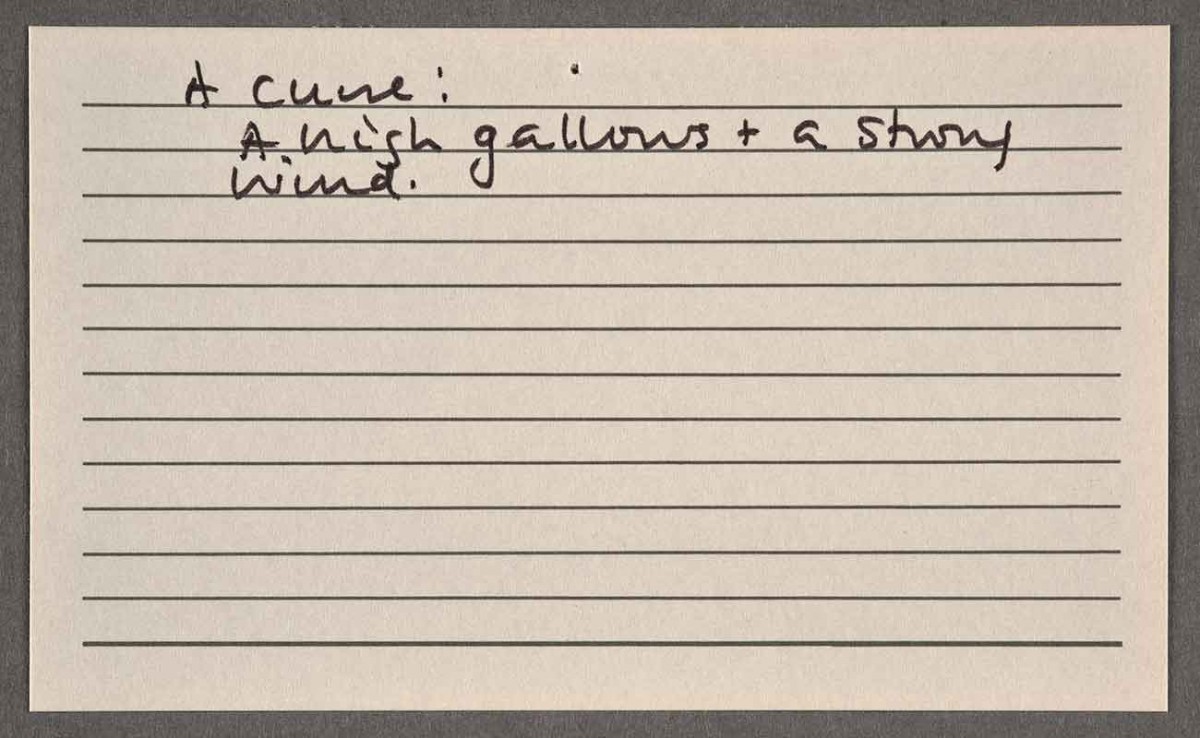 A cure:
A high gallows + a strong
wind.